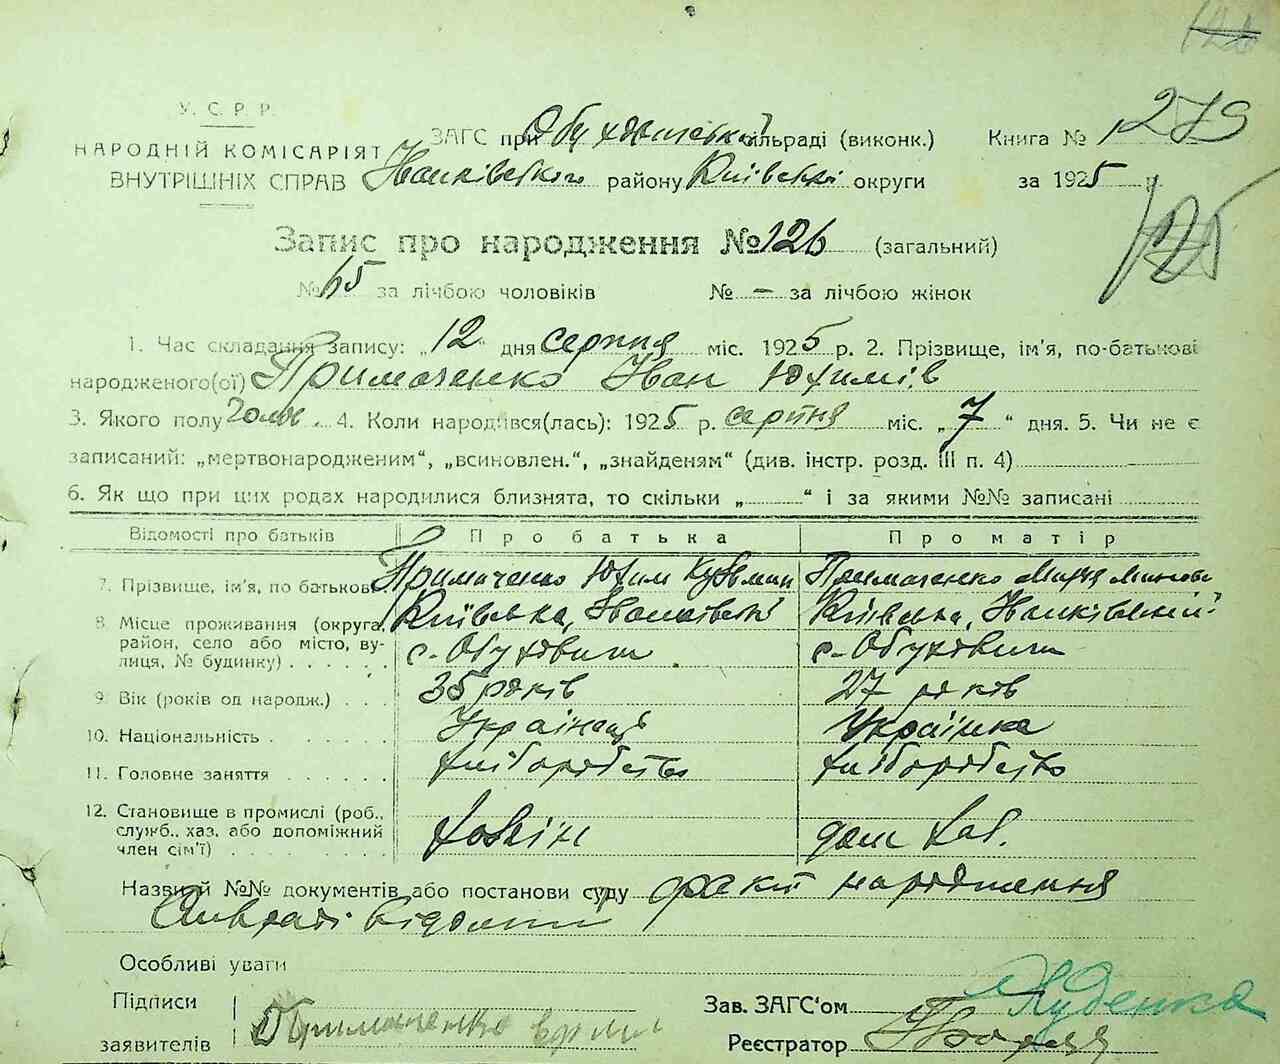 У. С. Р. Р.
НАРОДНІЙ КОМІСАРІЯТ
ВНУТРІШНІХ СПРАВ
ЗАГС при Обуховицькій сільраді (виконк.)
Іванківського району Київської округи
Книга № 279
за 1925 р.
125
Запис про народження № 126 (загальний)
№ 65 за лічбою чоловіків № – за лічбою жінок
1. Час складання запису: „12" дня серпня міс. 1925 р. 2. Прізвище, ім'я, по-батькові
народженого(ої) Примаченко Іван Юхимів
3. Якого полу чолов. 4. Коли народився(лась): 1925 р. серпня міс. „7" дня. 5. Чи не є
записаний: „мертвонародженим", „всиновлен.", „знайденям" (див. інстр. розд. III п. 4)
6. Як що при цих родах народилися близнята, то скільки „ " і за якими №№ записані
Відомості про батьків Про батька Про матір
7. Прізвище, ім'я, по батькові Примаченко Юхим Кузьмин Примаченко Марія
8. Місце проживання (округа, Київська, Іванківський Київська, Іванківський
район, село або місто, ву- с. Обуховичі с. Обуховичі
лиця, № будинку)
9. Вік (років од народж.) 35 років 27 років
10. Національність Українець Українка
11. Головне заняття хліборобство хліборобство
12. Становище в промислі (роб.,
служб., хаз. або допоміжний хазяїн дом. хаз.
член сім'ї)
Назви й №№ документів або постанови суду факт народження
Сільраді відомий
Особливі уваги
Підписи Примаченко
заявителів
Зав. ЗАГС'ом
Реєстратор